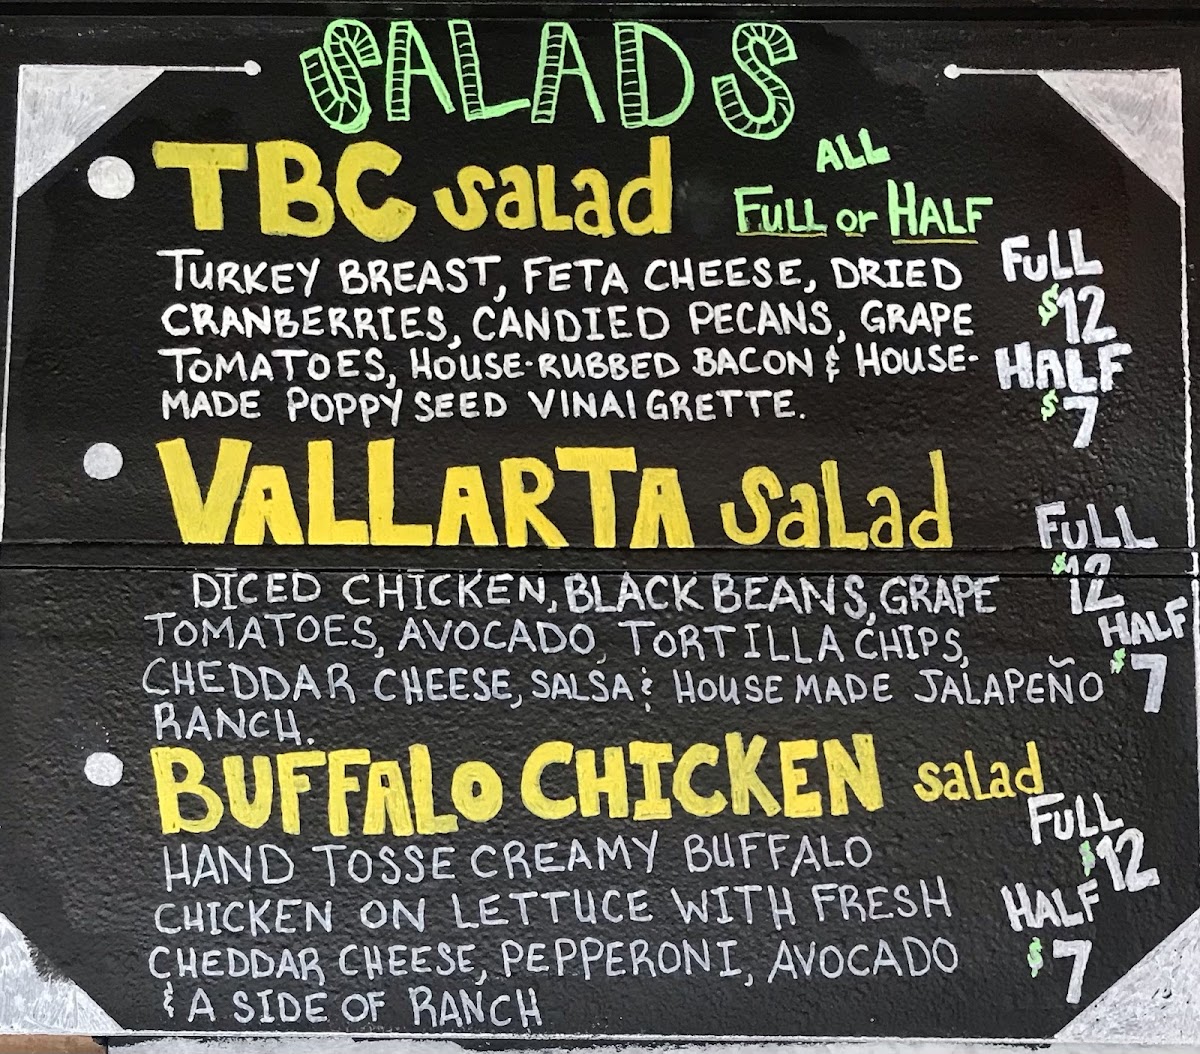 SALADS
TBC Salad
ALL
FULL or HALF
TURKEY BREAST, FETA CHEESE, DRIED
CRANBERRIES, CANDIED PECANS, GRAPE
TOMATOES, HOUSE-RUBBED BACON & HOUSE-
MADE POPPY SEED VINAIGRETTE.
FULL
$12
HALF
$7
VALLARTA Salad
DICED CHICKEN, BLACK BEANS, GRAPE
TOMATOES, AVOCADO, TORTILLA CHIPS,
CHEDDAR CHEESE, SALSA & HOUSE MADE JALAPEÑO
RANCH.
FULL
$12
HALF
$7
BUFFALO CHICKEN salad
HAND TOSSE CREAMY BUFFALO
CHICKEN ON LETTUCE WITH FRESH
CHEDDAR CHEESE, PEPPERONI, AVOCADO
& A SIDE OF RANCH
FULL
$12
HALF
$7